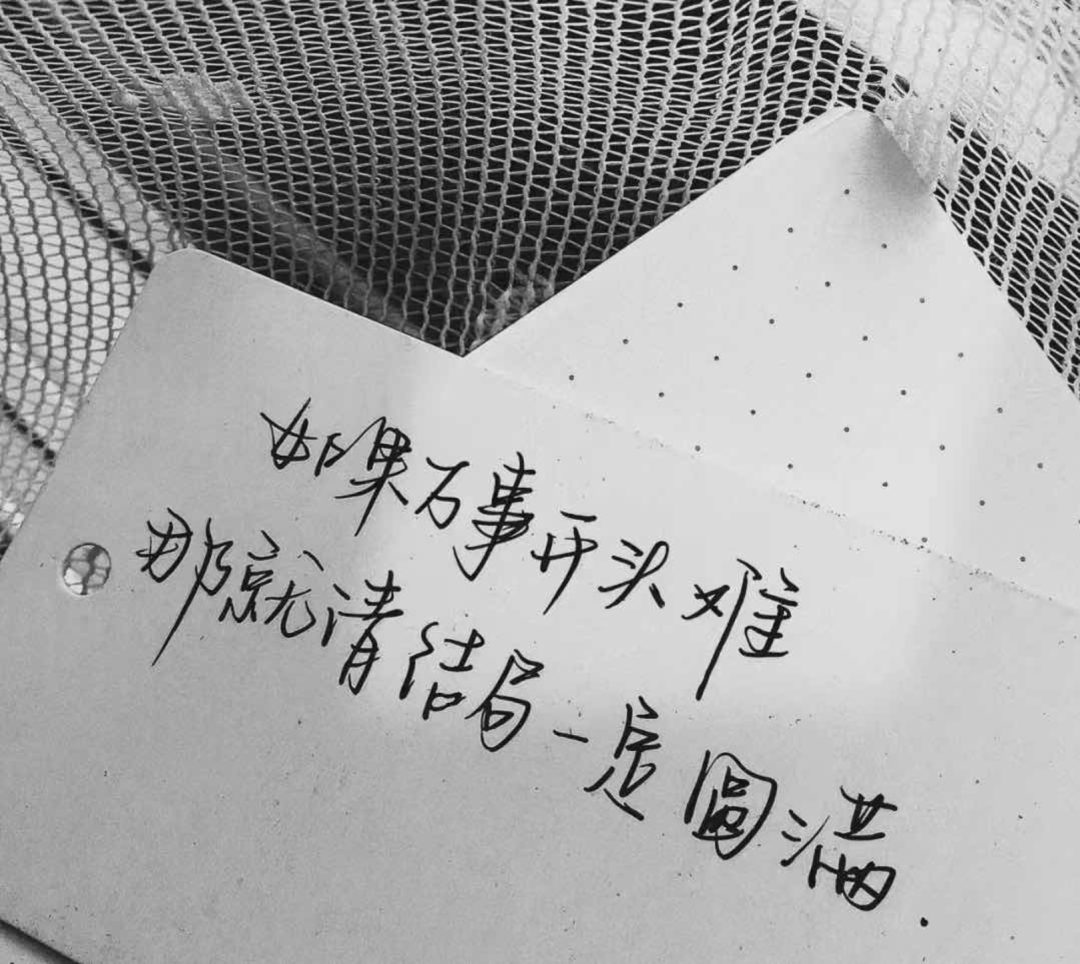 如果万事开头难
那就清结局一定圓满.